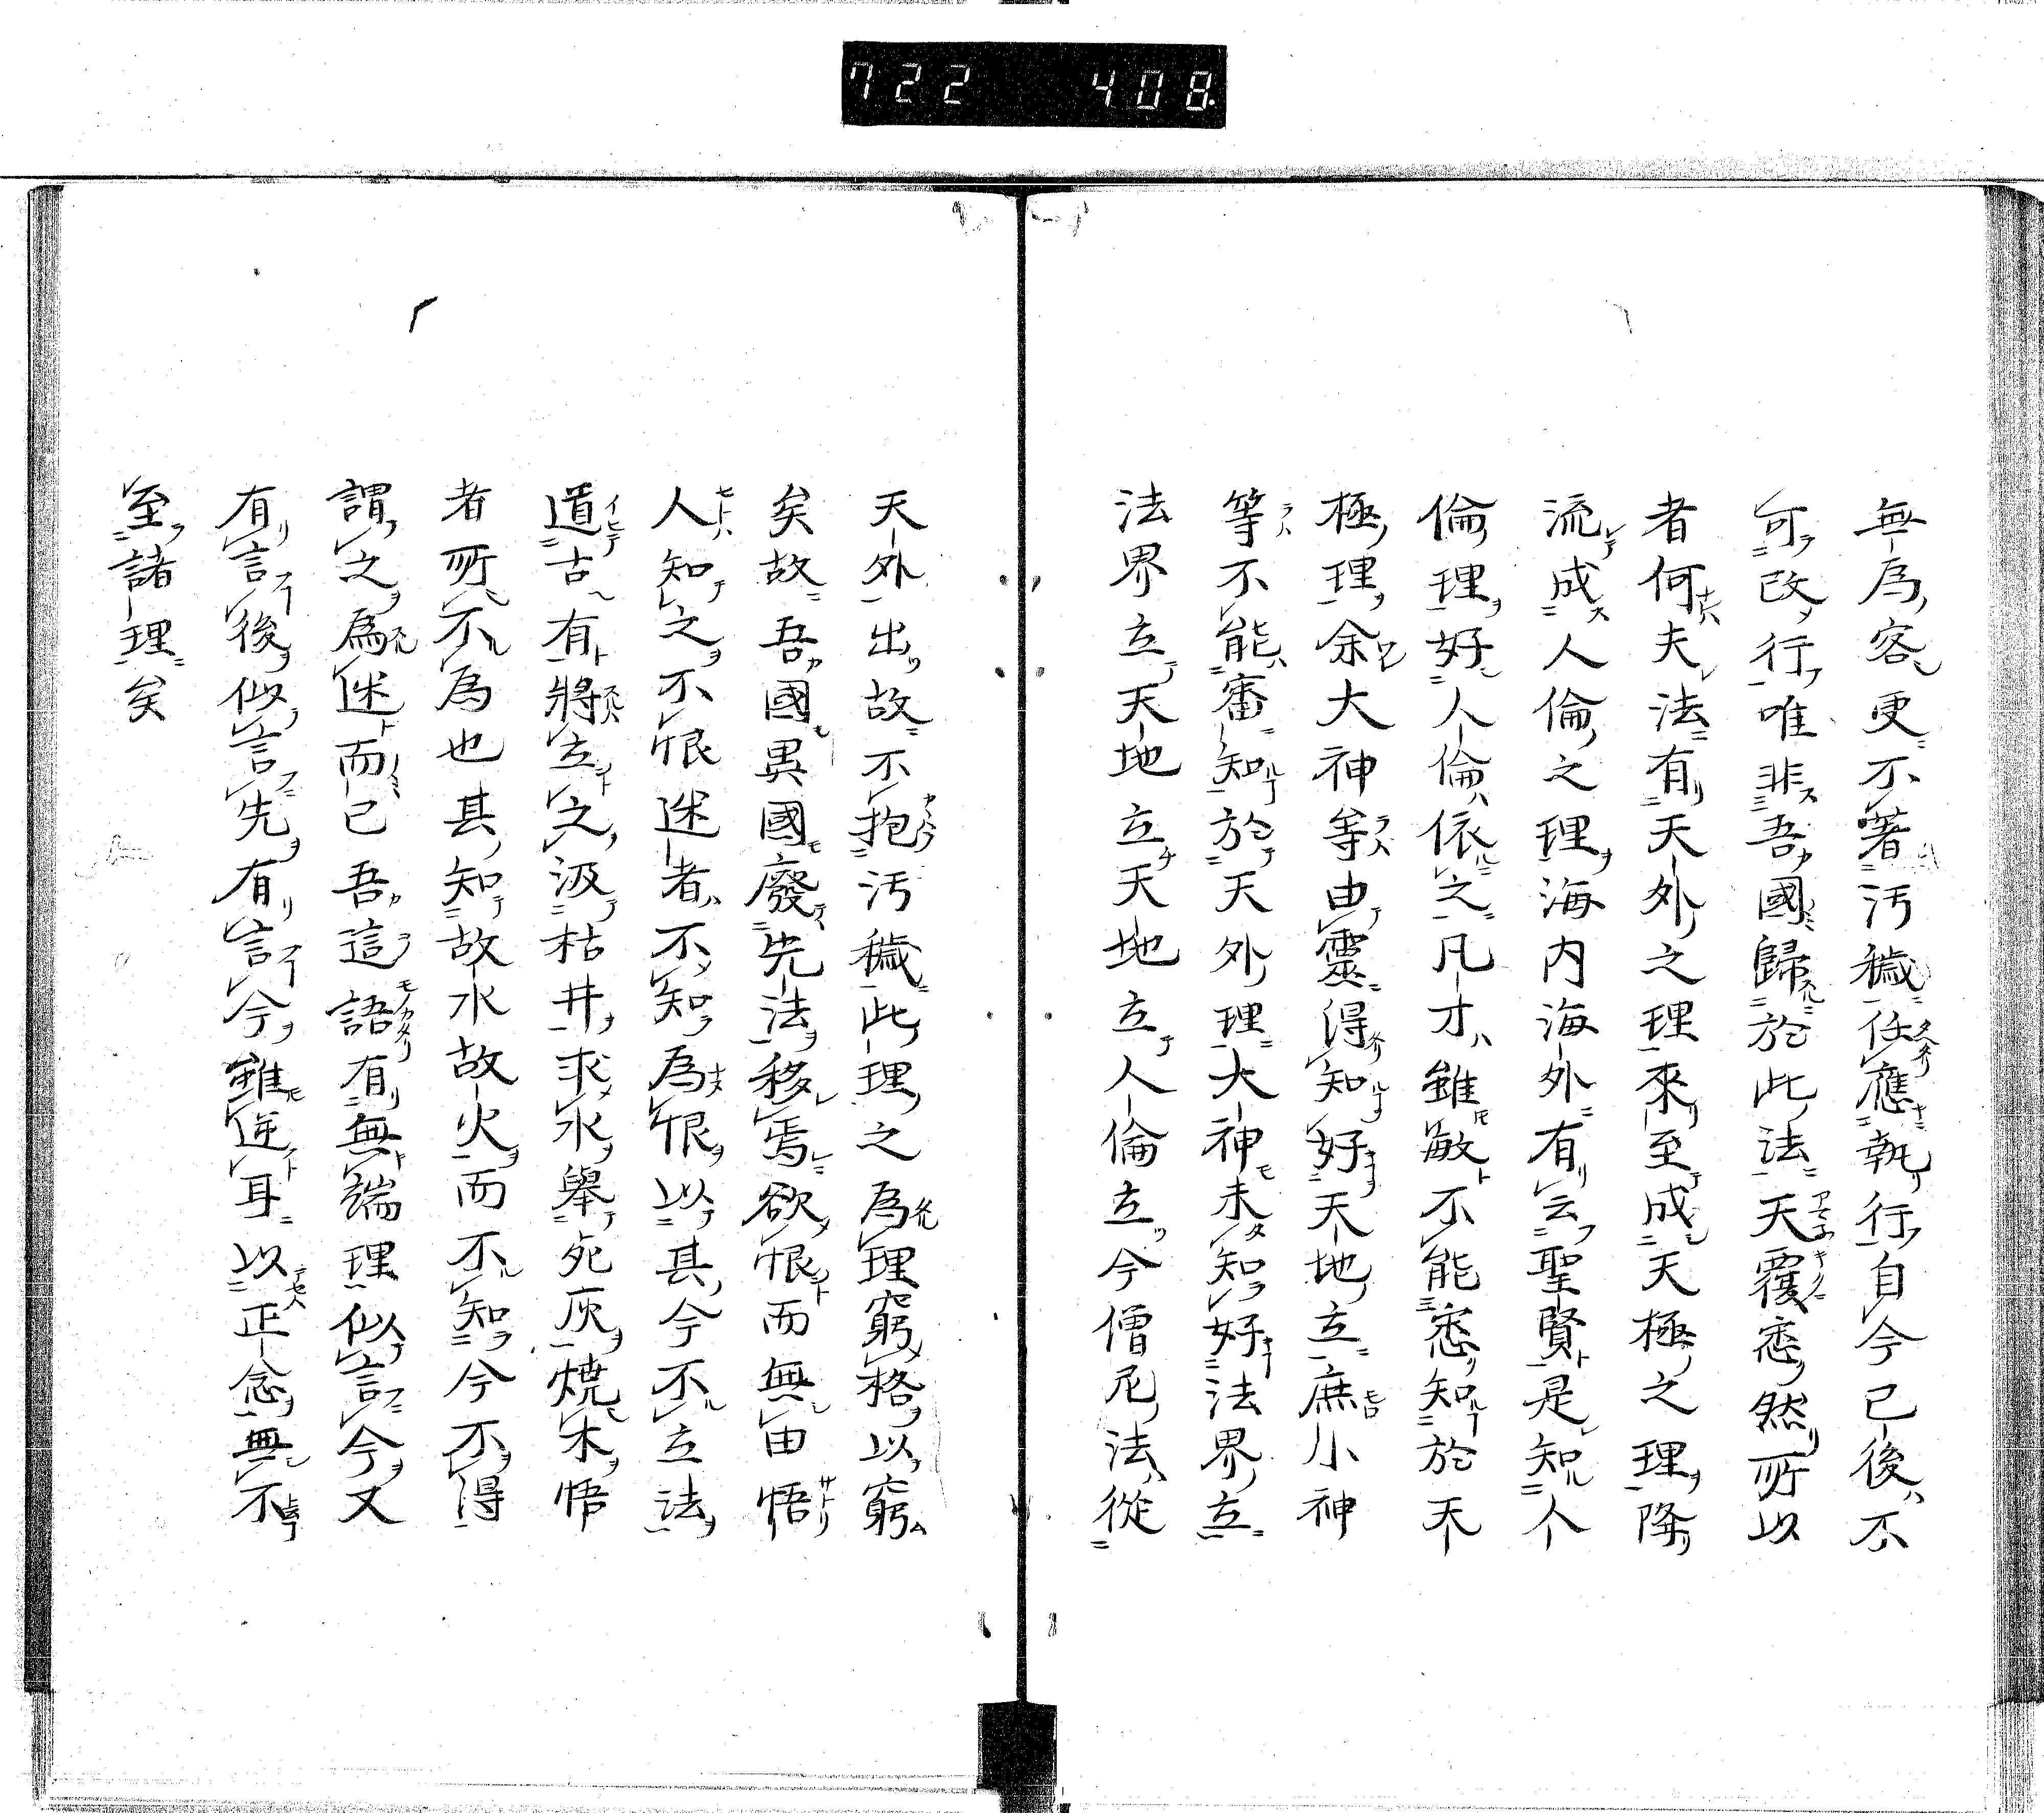 722 408
無為容更不著汚穢任應執行自今已後不
可改行唯非吾國歸於此法天覆悉然所以
者何夫法有天外之理來至成天極之理降
流成人倫之理海内海外有云聖賢是知人
倫理好人倫依之凡才雖敏不能悉知於天
極理余大神等由靈得知好天地立庶小神
等不能審知於天外理大神未知好法界立
法界立天地立天地立人倫立今僧尼法從
天外出故不抱汚穢此理之為理窮格以窮
矣故吾國異國廢先法移焉欲恨而無由悟
人知之不恨迷者不知為恨以其今不立法
道古有將立之汲枯井求水舉死灰燒木悟
者所不為也其知故水故火而不知今不得
謂之為迷而已吾這語有無端理似言今又
有言後似言先有言今雖逆耳以正念無不
至諸理矣